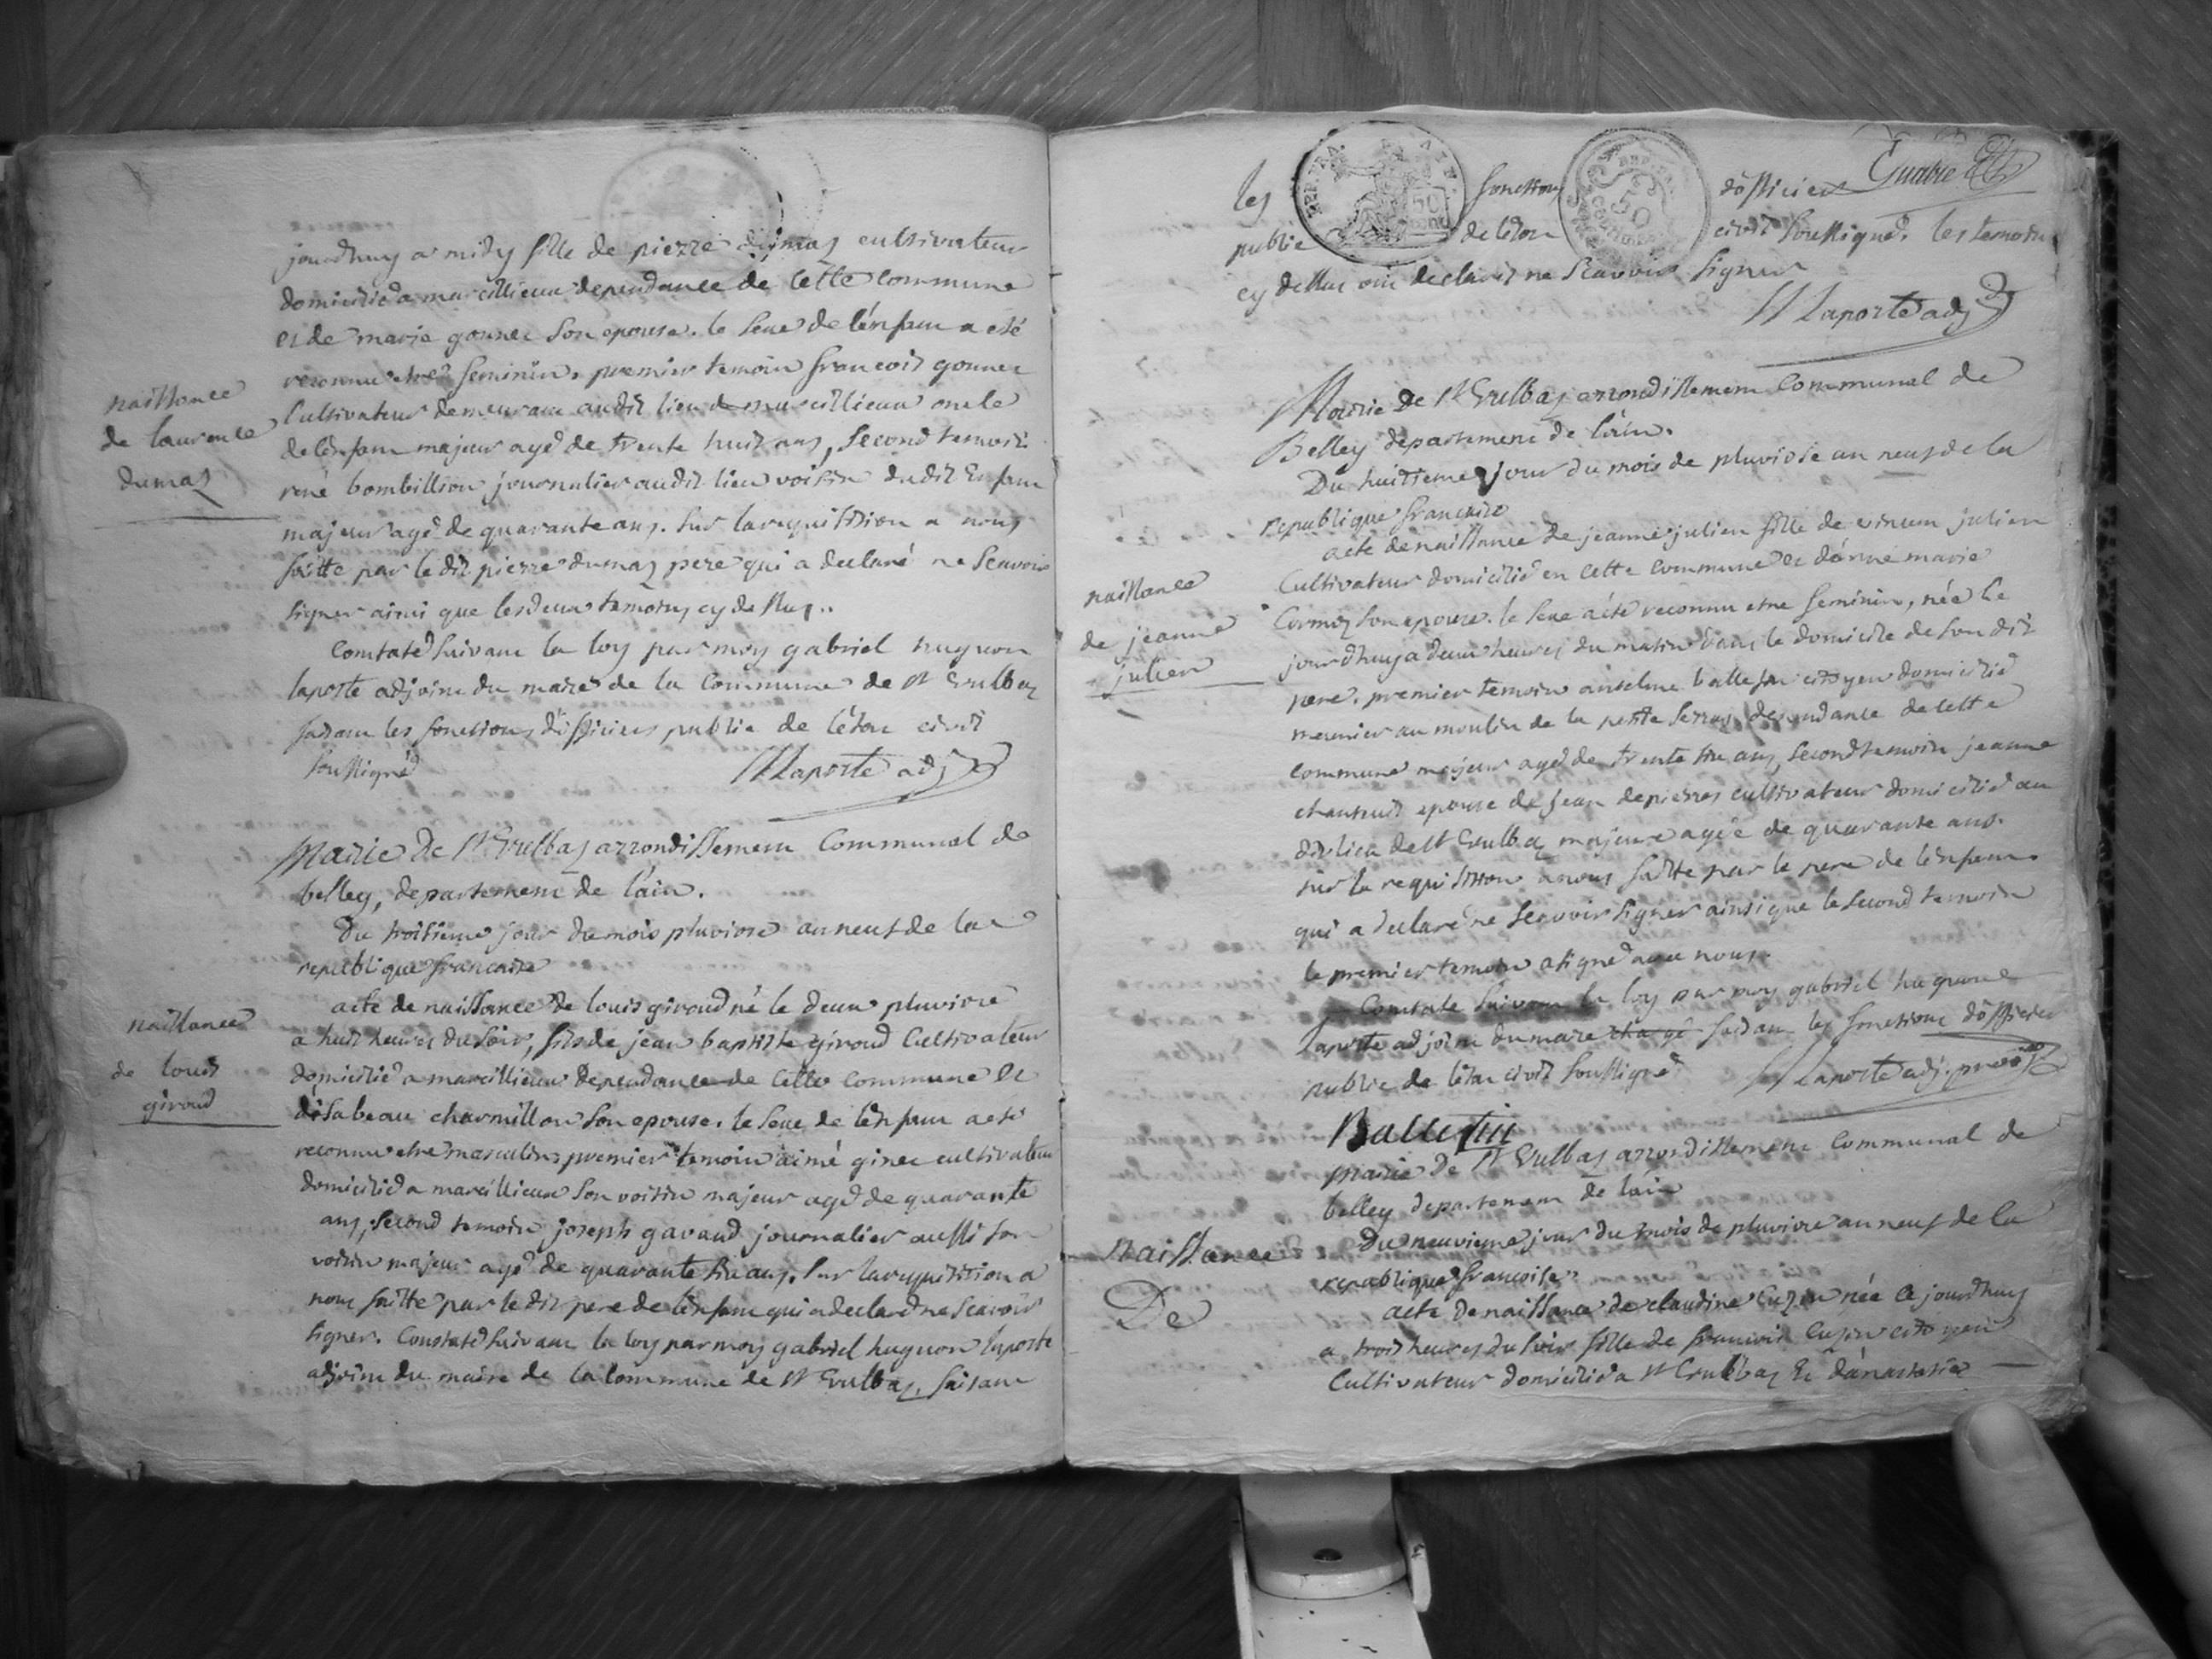 jourdhuy a midy fille de pierre dumas cultivateur
domicilié a marcillieux dependance de cette commune
et de marie gonnet son epouse. le sexe de lenfant a eté
reconnu etre feminin. premier temoin francois gonnet
naissance
de laurence
dumas
cultivateur demeurant audit lieu de marcillieux oncle
de lenfant majeur agé de trente huit ans, second temoin
rené bombillion journalier audit lieu voisin dudit Enfant
majeur agé de quarante ans. sur la requisition a nous
faitte par le dit pierre dumas pere qui a declaré ne scavoir
signer ainsi que les deux temoins cy dessus..
Constaté suivant la loy par moy gabriel hugnon
laporte adjoint du maire de la commune de st Vulbas
faisant les fonctions d'officier public de l'état civil
soussigné
Hlaporte adj
Mairie de st Vulbas arrondissement Communal de
belley, departement de l'ain.
du troisieme jour du mois pluviose an neuf de la
republique francaise
naissance
de louis
giroud
acte de naissance de louis giroud né le deux pluviose
a huit heures du soir, fils de jean baptiste giroud Cultivateur
domicilié a marcillieux dependance de cette commune Et
d'isabeau charmillon son epouse. le sexe de lenfant a eté
reconnu etre masculin, premier temoin aimé ginet cultivateur
domicilié a marcillieux son voisin majeur agé de quarante
ans, second temoin joseph gavand journalier aussi son
voisin majeur agé de quarante six ans. sur la requisition a
nous faitte par le dit pere de lenfant qui a declaré ne scavoir
signer. Constaté suivant la loy par moy gabriel hugnon laporte
adjoint du maire de la commune de st Vulbas, faisant
les fonctions d'officier Quatre
public de l'état civil soussigné. les temoins
cy dessus ont declaré ne scavoir signer
Hlaporte adj
Mairie de st Vulbas arrondissement Communal de
Belley departement de l'ain.
Du huitieme jour du mois de pluviose an neuf de la
republique francaise
naissance
de jeanne
julien
acte de naissance de jeanne julien fille de vincent julien
Cultivateur domicilié en cette commune et d'anne marie
Cormoz son epouse. le sexe a été reconnu etre feminin, née le
jourdhuy a deux heures du matin dans le domicile de son dit
pere. premier temoin anselme balletin citoyen domicilié
meunier au moulin de la petite serras dependance de cette
commune majeur agé de trente six ans, second temoin jeanne
epouse de jean depierres cultivateur domicilié au
dit lieu de st Vulbas majeure agée de quarante ans.
sur la requisition a nous faitte par le pere de lenfant
qui a declaré ne scavoir signer ainsi que le second temoin
le premier temoin a signé avec nous.
Constaté suivant la loy par moy gabriel hugnon
laporte adjoint du maire chargé faisant les fonctions d'officier
public de l'état civil soussigné
Hlaporte adj.
Balletin
Mairie de st Vulbas arrondissement Communal de
belley departement de l'ain
du neuvieme jour du mois de pluviose an neuf de la
republique francoise
naissance
De
acte de naissance de claudine Cuzin née ce jourdhuy
a trois heures du soir fille de francois Cuzin citoyen
Cultivateur domicilié a st Vulbas Et d'anastasie